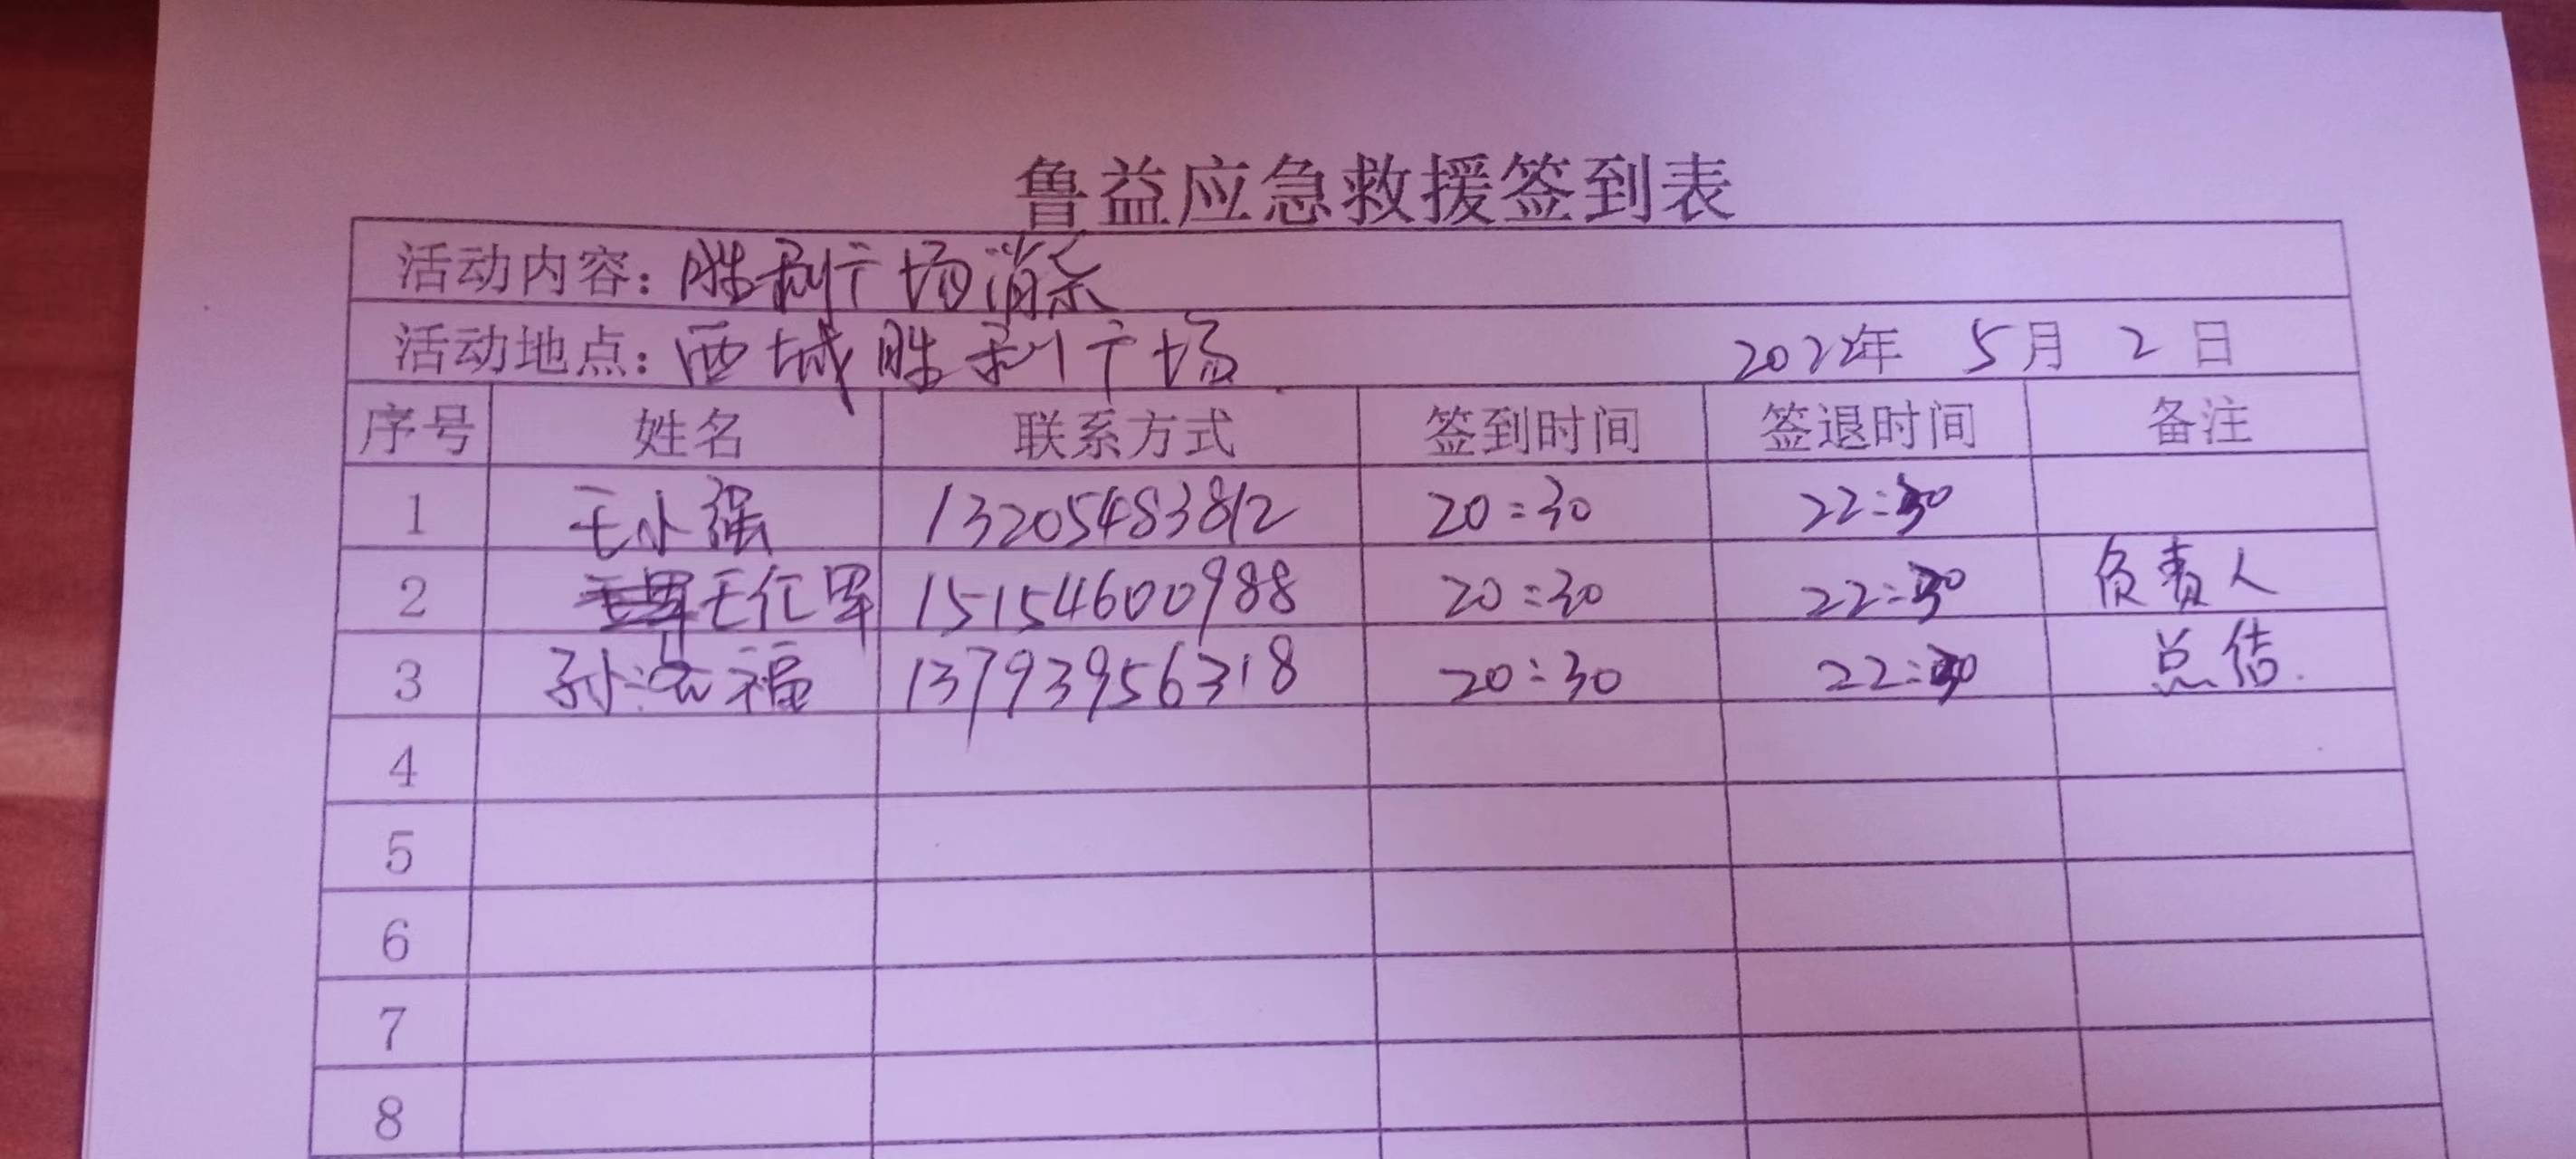 鲁益应急救援签到表
活动内容：胜利广场消杀
活动地点：西城胜利广场 2022年 5月 2日
序号 姓名 联系方式 签到时间 签退时间 备注
1 王小强 13205483812 20:30 22:30
2 王仁军 15154600988 20:30 22:30 负责人
3 孙洪福 13793956318 20:30 22:30 总结.
4
5
6
7
8